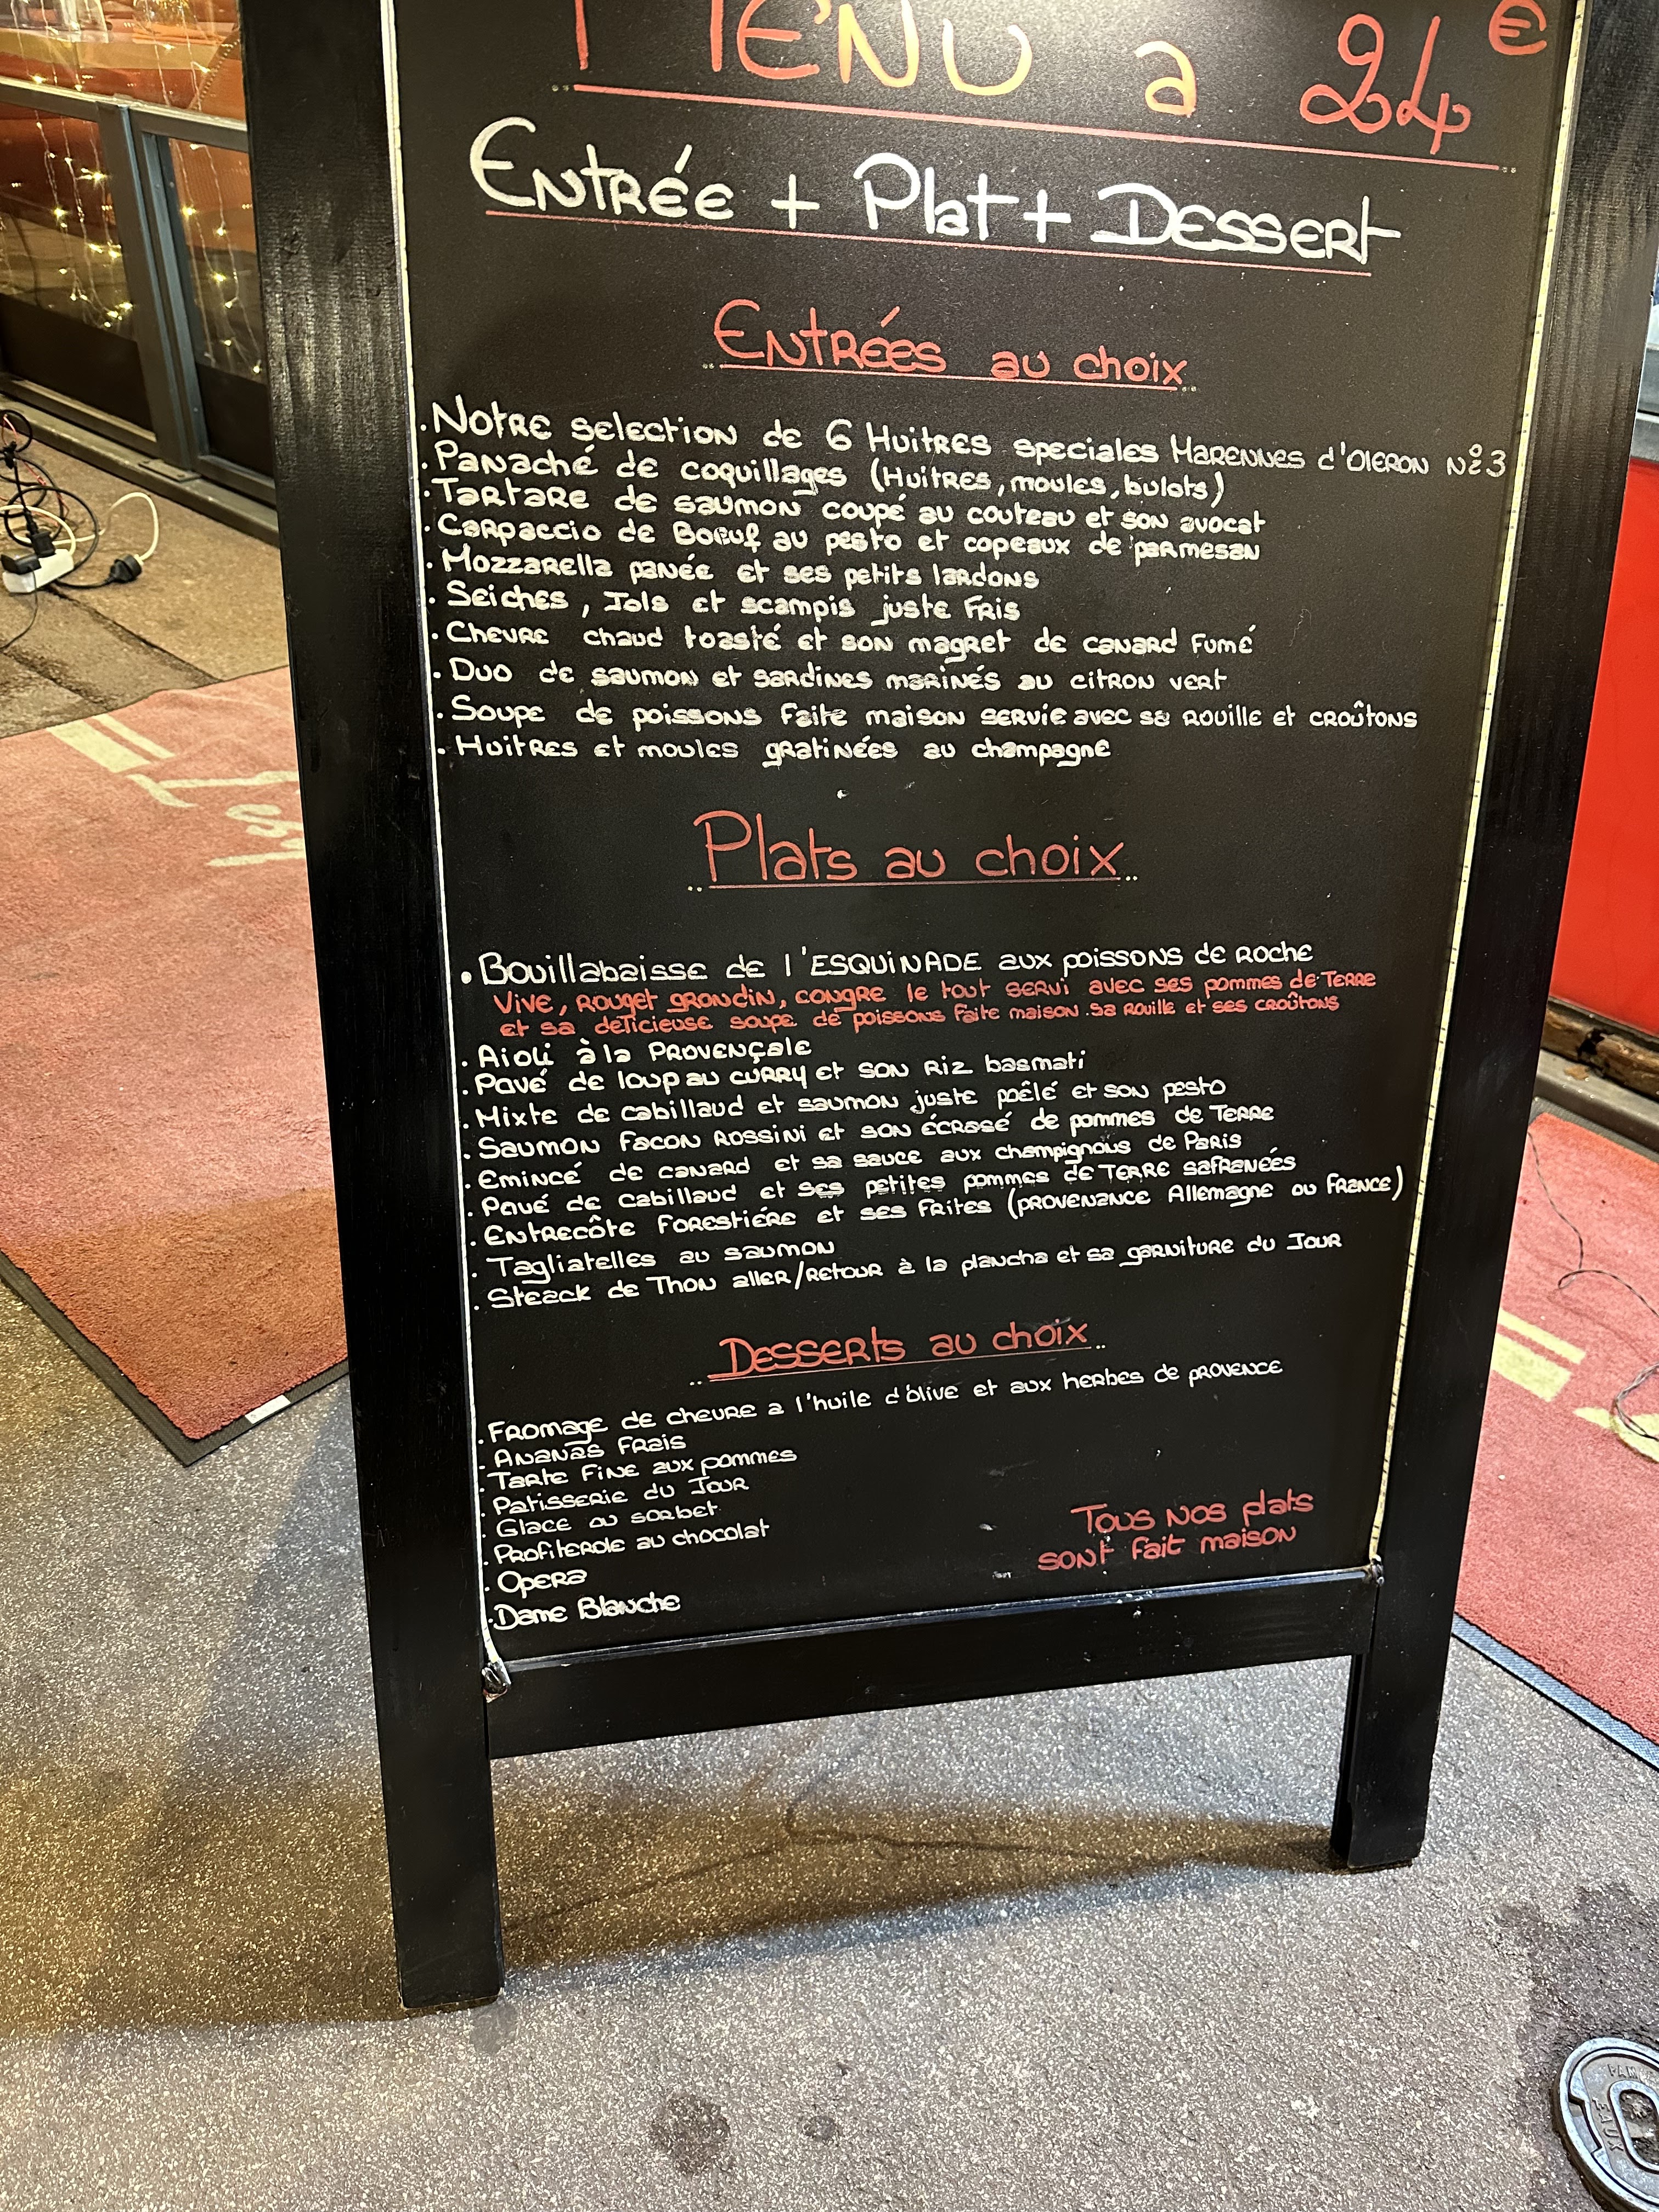 MENU a 24€
Entrée + Plat + Dessert
Entrées au choix
. Notre selection de 6 Huitres speciales Marennes d'Oleron N°3
. Panaché de coquillages (Huitres, moules, bulots)
. Tartare de saumon coupé au couteau et son avocat
. Carpaccio de Boeuf au pesto et copeaux de parmesan
. Mozzarella panée et ses petits lardons
. Seiches, Jols et scampis juste Fris
. Chevre chaud toasté et son magret de canard Fumé
. Duo de saumon et sardines marinés au citron vert
. Soupe de poissons Faite maison servie avec sa rouille et croûtons
. Huitres et moules gratinées au champagne
Plats au choix
. Bouillabaisse de l'ESQUINADE aux poissons de Roche
Vive, rouget grondin, congre le tout servi avec ses pommes de Terre
et sa delicieuse soupe de poissons Faite maison. Sa Rouille et ses croûtons
. Aioli à la Provençale
. Pavé de loup au curry et son Riz basmati
. Mixte de cabillaud et saumon juste poêlé et son pesto
. Saumon Facon Rossini et son écrasé de pommes de Terre
. Emincé de canard et sa sauce aux champignons de Paris
. Pavé de Cabillaud et ses petites pommes de Terre safranées
. Entrecôte Forestiére et ses Frites (provenance Allemagne ou France)
. Tagliatelles au saumon
. Steack de Thon aller/retour à la plancha et sa garniture du Jour
Desserts au choix
. Fromage de chevre a l'huile d'olive et aux herbes de provence
. Ananas Frais
. Tarte Fine aux pommes
. Patisserie du Jour
. Glace ou sorbet
. Profiterole au chocolat
. Opera
. Dame Blanche
Tous nos plats
sont fait maison